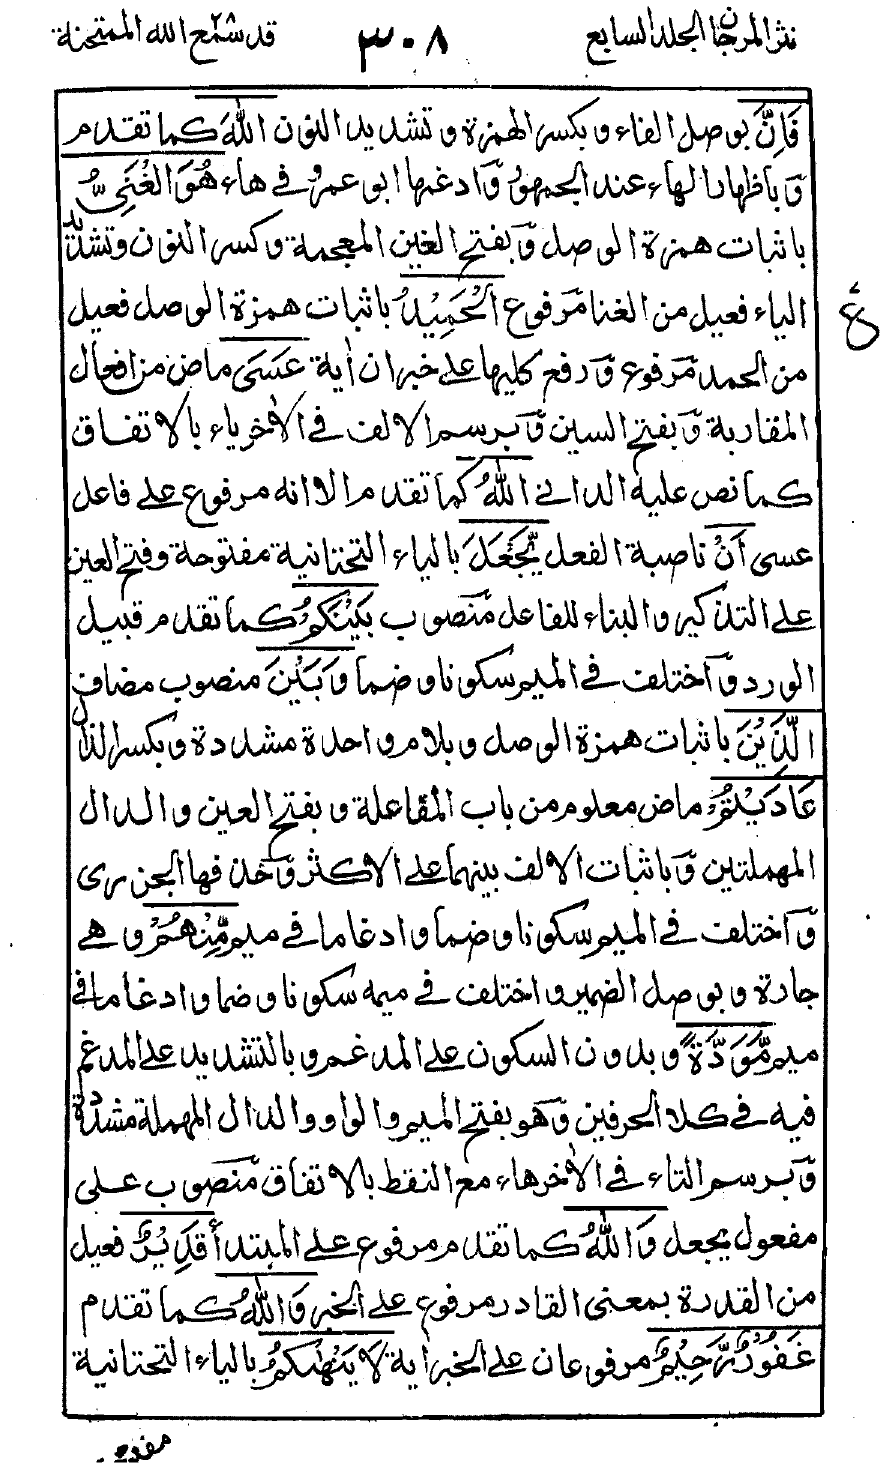 نثر المرجان الجلد السابع
٣٠٨
قد سمع الله ٢٨ الممتحنة
فَإِنَّ بوصل الفاء وبكسر الهمزة وتشديد النون اللهَ كما تقدم
وباظهار الهاء عند الجمهور وادغمها ابو عمرو في هاء هُوَ الْغَنِيُّ
باثبات همزة الوصل وبفتح الغين المعجمة وكسر النون وتشديد
الياء فعيل من الغنا مرفوع الْحَمِيْدُ باثبات همزة الوصل فعيل
من الحمد مرفوع ورفع كليها على خبر ان اٰية عَسَى ماض من افعال
المقاربة وبفتح السين وبرسم الالف في الاٰخر ياء بالاتفاق
كما نص عليه الداني اللهُ كما تقدم الا انه مرفوع على فاعل
عسى اَنْ ناصبة الفعل يَّجْعَلَ بالياء التحتانية مفتوحة وفتح العين
على التذكير والبناء للفاعل منصوب بَيْنَكُمْ كما تقدم قبيل
الورد واختلف في الميم سكونا وضما وَبَيْنَ منصوب مضاف
الَّذِيْنَ باثبات همزة الوصل وبلام واحدة مشددة وبكسر الذال
عَادَيْتُمْ ماض معلوم من باب المفاعلة وبفتح العين والدال
المهملتين وباثبات الالف بينهما على الاكثر وحذفها الجزري
واختلف في الميم سكونا وضما وادغاما في ميم مِّنْهُمْ وهي
جارة وبوصل الضمير واختلف في ميمه سكونا وضما وادغاما في
ميم مَّوَدَّةً وبدون السكون على المدغم وبالتشديد على المدغم
فيه في كلا الحرفين وهو بفتح الميم والواو والدال المهملة مشددة
وبرسم التاء في الاٰخر هاء مع النقط بالاتفاق منصوب على
مفعول يجعل وَاللهُ كما تقدم مرفوع على المبتدأ قَدِيْرٌ فعيل
من القدرة بمعنى القادر مرفوع على الخبر وَاللهُ كما تقدم
غَفُوْرٌ رَّحِيْمٌ مرفوعان على الخبر اٰية لَا يَنْهٰىكُمُ بالياء التحتانية
ع
مفتوحة